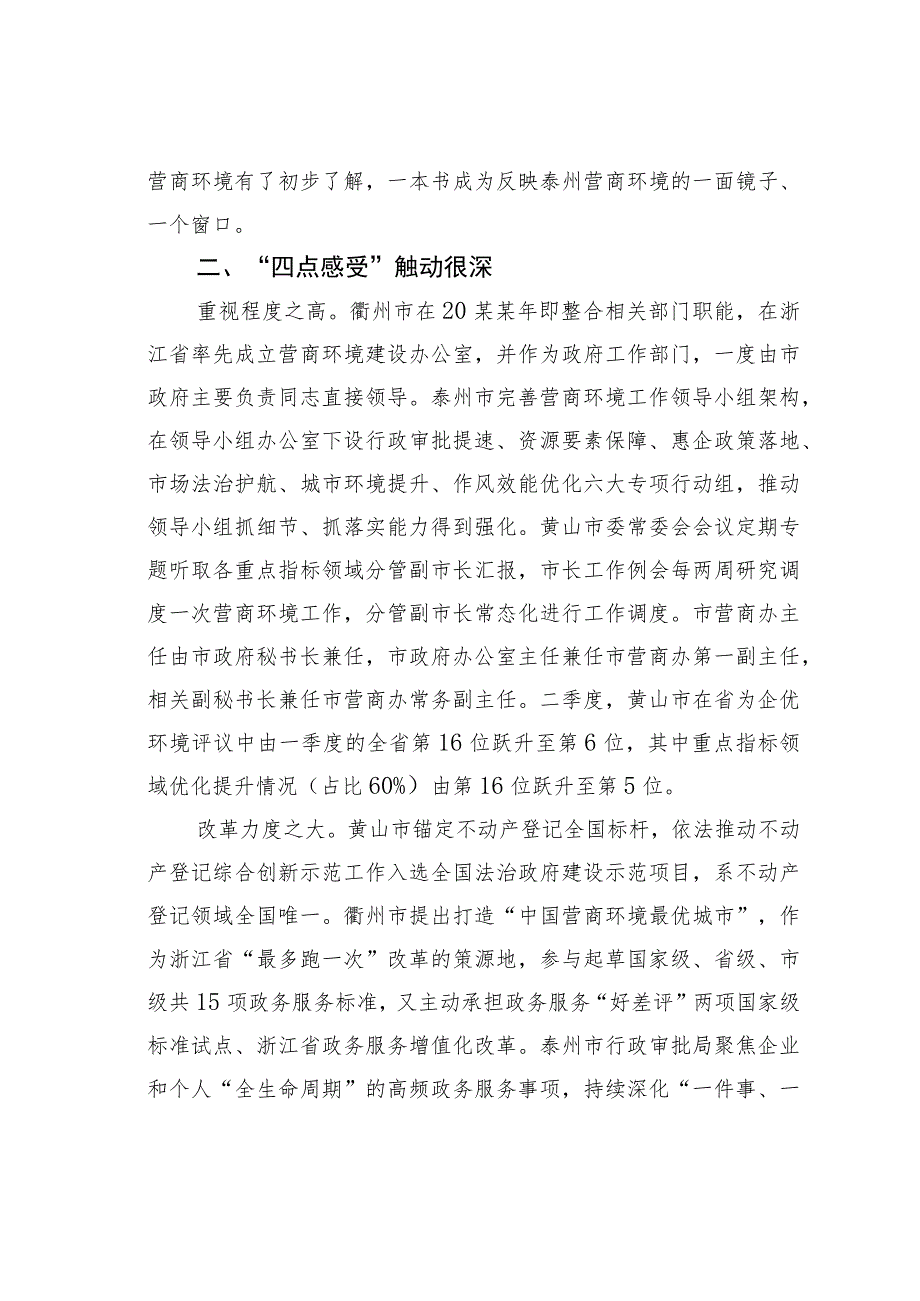 营商环境有了初步了解，一本书成为反映泰州营商环境的一面镜子、
一个窗口。
二、“四点感受”触动很深
重视程度之高。衢州市在 20 某某年即整合相关部门职能，在浙
江省率先成立营商环境建设办公室，并作为政府工作部门，一度由市
政府主要负责同志直接领导。泰州市完善营商环境工作领导小组架构，
在领导小组办公室下设行政审批提速、资源要素保障、惠企政策落地、
市场法治护航、城市环境提升、作风效能优化六大专项行动组，推动
领导小组抓细节、抓落实能力得到强化。黄山市委常委会会议定期专
题听取各重点指标领域分管副市长汇报，市长工作例会每两周研究调
度一次营商环境工作，分管副市长常态化进行工作调度。市营商办主
任由市政府秘书长兼任，市政府办公室主任兼任市营商办第一副主任，
相关副秘书长兼任市营商办常务副主任。二季度，黄山市在省为企优
环境评议中由一季度的全省第 16 位跃升至第 6 位，其中重点指标领
域优化提升情况（占比 60%）由第 16 位跃升至第 5 位。
改革力度之大。黄山市锚定不动产登记全国标杆，依法推动不动
产登记综合创新示范工作入选全国法治政府建设示范项目，系不动产
登记领域全国唯一。衢州市提出打造“中国营商环境最优城市”，作
为浙江省“最多跑一次”改革的策源地，参与起草国家级、省级、市
级共 15 项政务服务标准，又主动承担政务服务“好差评”两项国家级
标准试点、浙江省政务服务增值化改革。泰州市行政审批局聚焦企业
和个人“全生命周期”的高频政务服务事项，持续深化“一件事、一